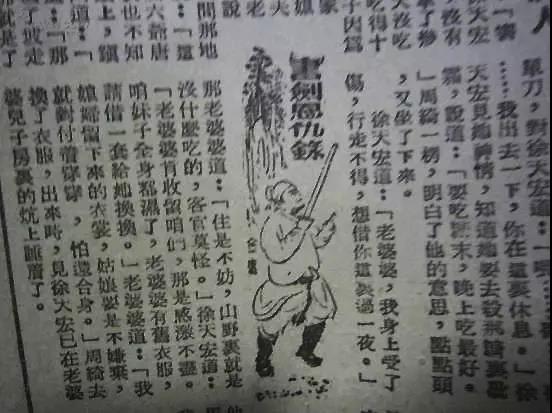 人
徐天宏
沒有
沒吃
吃得十
子因為
間那地
六爺唐
也不知
道：「
「那
就是了
單刀，對徐天宏道：「
……我出去一下，你在這裏休息。」徐
天宏見她神情，知道她要去殺
霸，說道：「要吃 末，晚上吃最好。
」周綺一楞，明白了他的意思，點點頭
，又坐了下來。
徐天宏道：「老婆婆，我身上受了
傷，行走不得，想借你這裏過一夜。」
書劍恩仇錄
金庸
那老婆婆道：「住是不妨，山野裏就是
沒什麼吃的，客官莫怪。」徐天宏道：
「老婆婆肯收留咱們，那是感激不盡。
咱妹子全身都濕了，老婆婆有舊衣服，
請借一套給她換換。」老婆婆道：「我
媳婦留下來的衣裳，姑娘要是不嫌棄，
就對付着穿穿，怕還合身。」周綺去
換了衣服，出來時，見徐天宏已在老婆
婆兒子房裏的炕上睡着了。